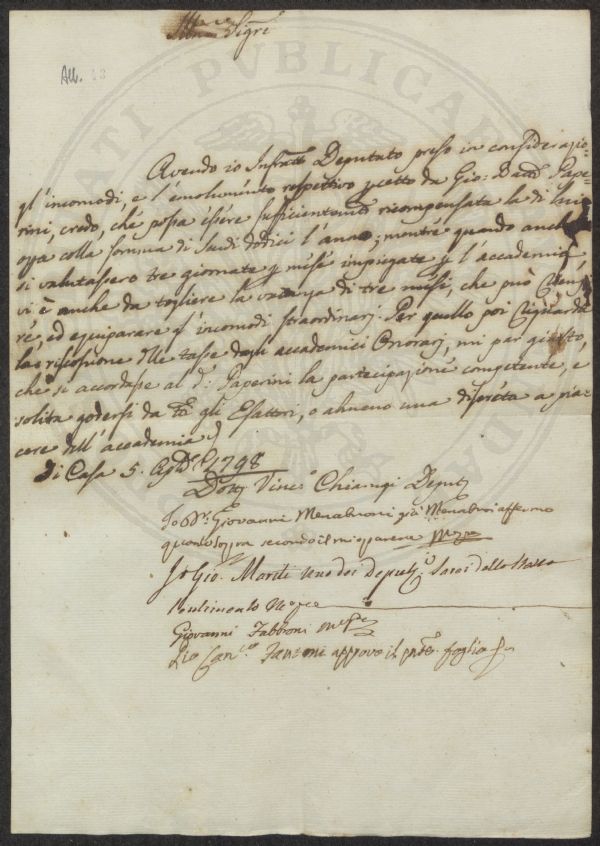 Illmi Sigri
All. 13
Avendo io Infratto Deputato preso in considerazio-
gl'incomodi, e l'emolumento respettivo da Gio: Batta Pape-
rini, credo, che possa essere sufficientemte ricompensata la di lui
opa colla somma di Scudi dodici l'anno; mentre quando anche
si valutassero tre giornate p mese impiegate p l'accademia,
vi è anche da togliere la vacanza di tre mesi, che può
re, ed equiparare gl'incomodi straordinarj. Per quello poi riguarda
la riscossione delle tasse dagli accademici Onorarj, mi par giusto,
che si accordasse al d: Paperini la partecipazione competente, e
solita godersi da tti gli Esattori, o almeno una discreta a pia-
cere dell'accademia
Di Casa 5. 1798
Dott Vinc Chiarugi Deputo
Io Dr. Giovanni Menabuoni affermo
quanto sopra secondo il mio parere
Io Gio. Mariti uno dei Deputi Sarei dello stesso
sentimento
Giovanni Fabbroni
Io Canco Zanzeni approvo il pnte foglio